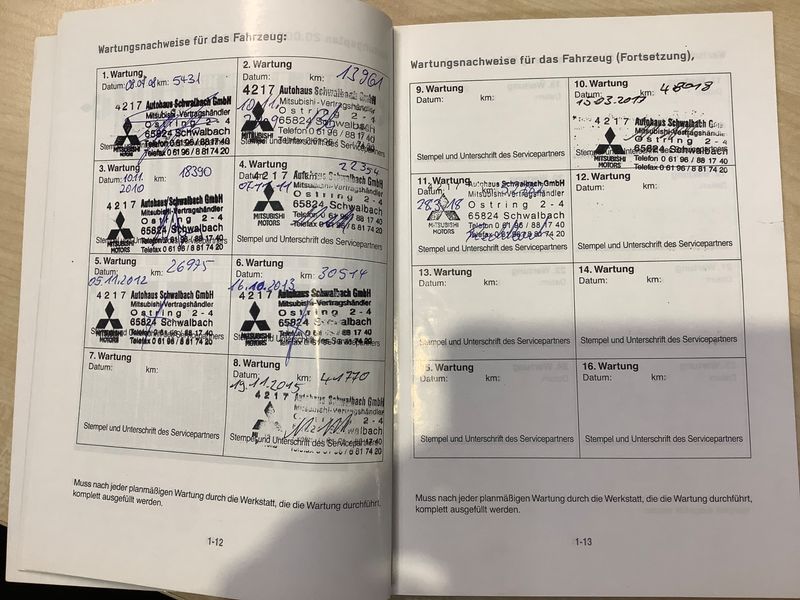 Wartungsnachweise für das Fahrzeug:
1. Wartung
Datum: 08.09.08 km: 5431
4217 Autohaus Schwalbach GmbH
Mitsubishi-Vertragshändler
Ostring 2-4
65824 Schwalbach
Telefon 0 61 96 / 88 17 40
Telefax 0 61 96 / 8 81 74 20
MITSUBISHI
MOTORS
2. Wartung
Datum: km: 13961
4217 Autohaus Schwalbach GmbH
Mitsubishi-Vertragshändler
Ostring 2-4
65824 Schwalbach
Telefon 0 61 96 / 88 17 40
3. Wartung
Datum: 10.11. km: 18390
2010
4217 Autohaus Schwalbach GmbH
Mitsubishi-Vertragshändler
Ostring 2-4
65824 Schwalbach
Telefon 0 61 96 / 88 17 40
Telefax 0 61 96 / 8 81 74 20
MITSUBISHI
MOTORS
4. Wartung
22354
4217 Autohaus Schwalbach GmbH
Mitsubishi-Vertragshändler
Ostring 2-4
65824 Schwalbach
MITSUBISHI
MOTORS
Stempel und Unterschrift des Servicepartners
5. Wartung
Datum: km: 26975
05.11.2012
4217 Autohaus Schwalbach GmbH
Mitsubishi-Vertragshändler
Ostring 2-4
65824 Schwalbach
Telefon 0 61 96 / 88 17 40
Telefax 0 61 96 / 8 81 74 20
MITSUBISHI
MOTORS
6. Wartung
Datum: km: 30514
16.10.2013
4217 Autohaus Schwalbach GmbH
Mitsubishi-Vertragshändler
Ostring 2-4
65824 Schwalbach
Telefon 0 61 96 / 88 17 40
Telefax 0 61 96 / 8 81 74 20
MITSUBISHI
MOTORS
7. Wartung
Datum: km:
Stempel und Unterschrift des Servicepartners
8. Wartung
Datum: km: 41770
19.11.2015
4217 Autohaus Schwalbach GmbH
Mitsubishi-Vertragshändler
Stempel und Unterschrift des Servicepartners
Muss nach jeder planmäßigen Wartung durch die Werkstatt, die die Wartung durchführt,
komplett ausgefüllt werden.
1-12
Wartungsnachweise für das Fahrzeug (Fortsetzung),
9. Wartung
Datum: km:
Stempel und Unterschrift des Servicepartners
10. Wartung
Datum: km: 48018
15.03.2017
4217 Autohaus Schwalbach GmbH
Mitsubishi-Vertragshändler
Ostring 2-4
65824 Schwalbach
Telefon 0 61 96 / 88 17 40
Telefax 0 61 96 / 8 81 74 20
MITSUBISHI
MOTORS
11. Wartung
Datum: km:
28.3.18
4217 Autohaus Schwalbach GmbH
Mitsubishi-Vertragshändler
Ostring 2-4
65824 Schwalbach
MITSUBISHI
MOTORS
12. Wartung
Datum: km:
Stempel und Unterschrift des Servicepartners
13. Wartung
Datum: km:
Stempel und Unterschrift des Servicepartners
14. Wartung
Datum: km:
Stempel und Unterschrift des Servicepartners
15. Wartung
Datum: km:
Stempel und Unterschrift des Servicepartners
16. Wartung
Datum: km:
Stempel und Unterschrift des Servicepartners
Muss nach jeder planmäßigen Wartung durch die Werkstatt, die die Wartung durchführt,
komplett ausgefüllt werden.
1-13